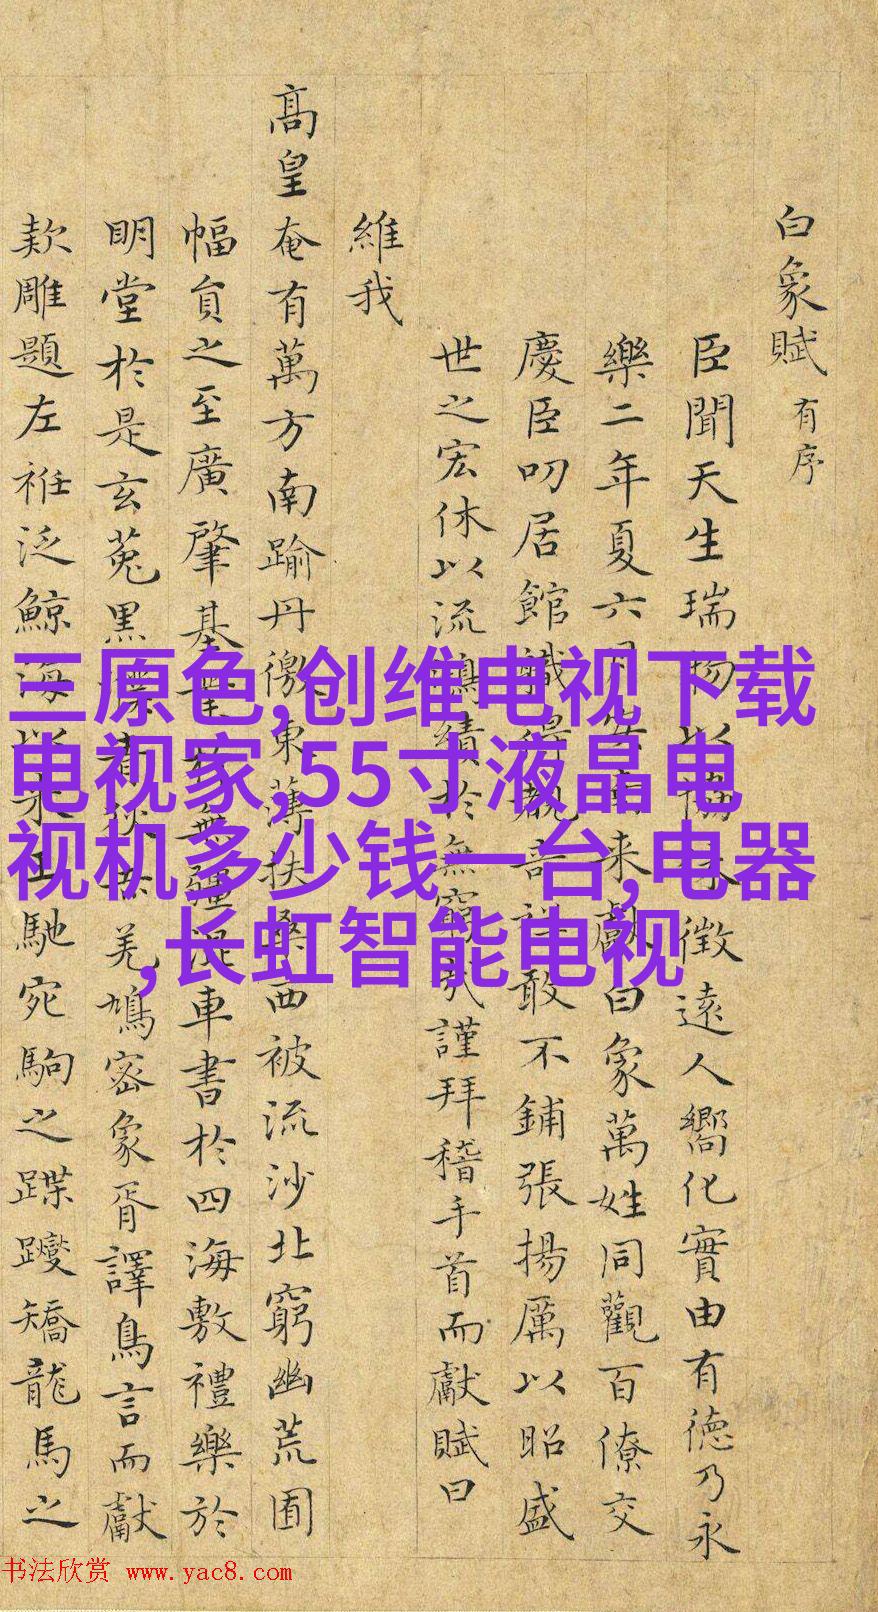 白象賦 有序
臣聞天生瑞物以
徵遠人嚮化實由有德乃永
樂二年夏六月
来獻白象萬姓同觀百僚交
慶臣叨居館職
敢不鋪張揚厲以昭盛
世之宏休以流鴻績於無窮
謹拜稽手首而獻賦曰
維我
高皇奄有萬方南踰丹徼東薄扶桑西被流沙北窮幽荒囿
幅員之至廣肇基
車書於四海敷禮樂於
明堂於是玄菟黑
羌鳩密象胥譯鳥言而獻
欵雕題左袵泛鯨海以
馳宛駒之蹀躞矯龍馬之
三原色,创维电视下载
电视家,55寸液晶电
视机多少钱一台,电器
,长虹智能电视
书法欣赏 www.yac8.com